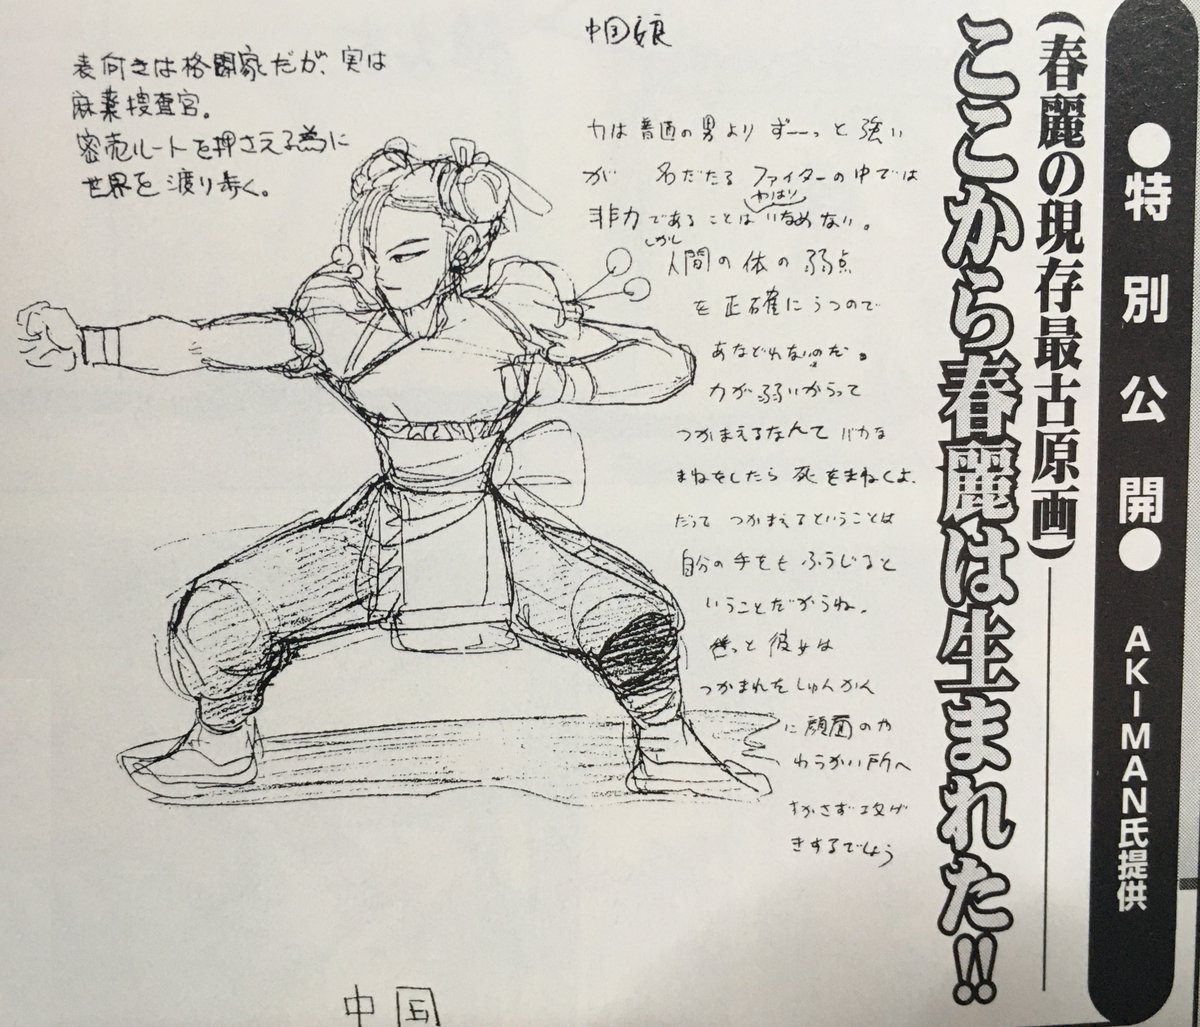 ●特別公開● AKIMAN氏提供
(春麗の現存最古原画)
ここから春麗は生まれた!!
中国娘
表向きは格闘家だが、実は
麻薬捜査官。
密売ルートを押さえる為に
世界を渡り歩く。
力は普通の男よりずーっと強い
が 名だたるファイターの中では
やはり
非力であることはいなめない。
しかし
人間の体の弱点
を正確にうつので
あなどれないのだ。
力が弱いからって
つかまえるなんてバカな
まねをしたら死をまねくよ。
だってつかまえるということは
自分の手をもふうじると
いうことだからね。
きっと彼女は
つかまれたしゅんかん
に顔面のや
わらかい所へ
すかさず攻げ
きするでしょう
中国